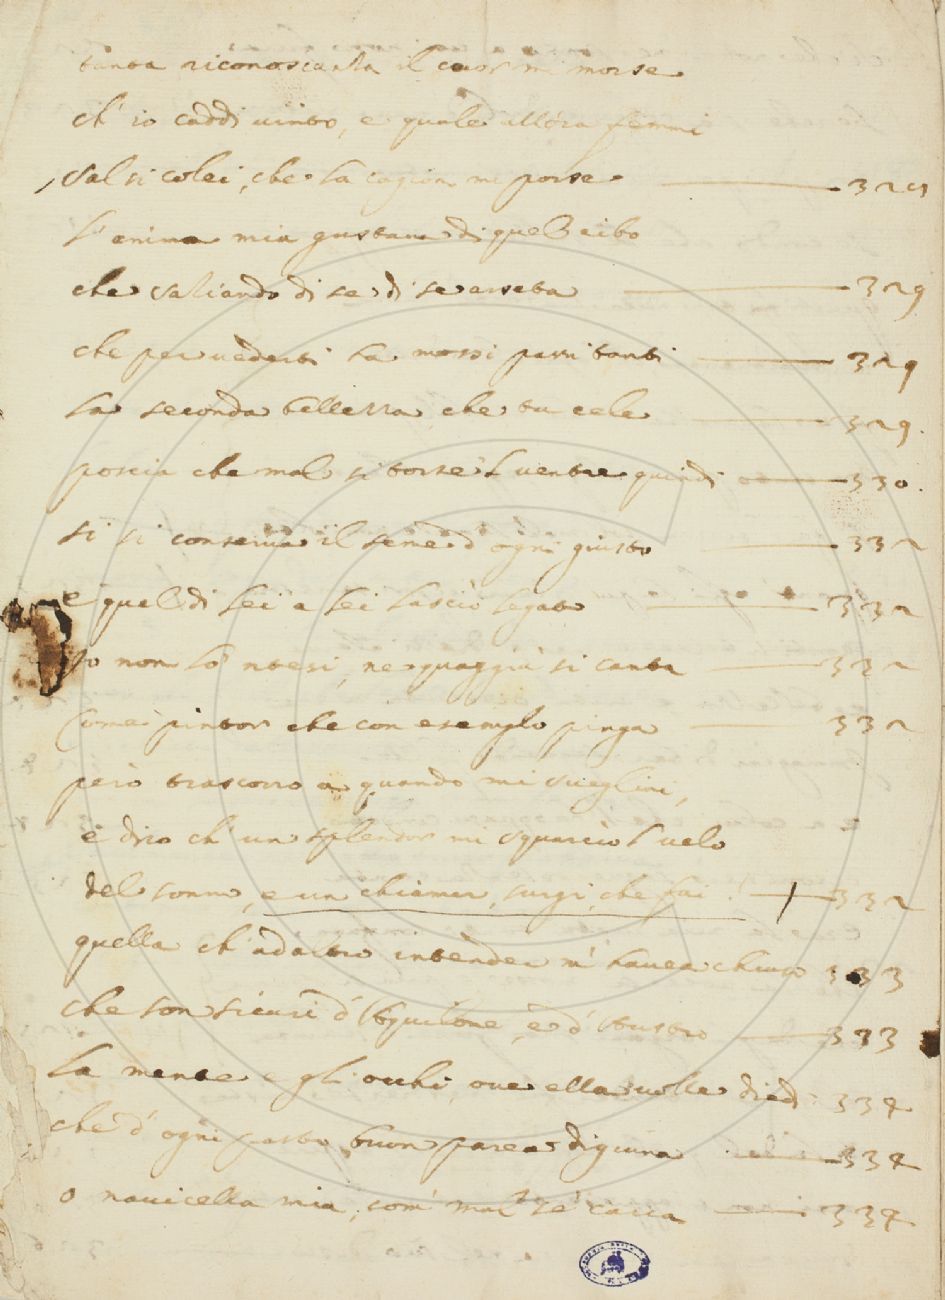 tanta riconoscenza il cuor mi morse
ch' io caddi uinto, e quale allora femmi
Salsi colei, che la cagion mi porse 329
l' anima mia gustaua di quel cibo
che saliando di se di se asseta 329
che per uederti ha mossi passi tanti 329
la seconda bellezza che tu cele 329.
poscia che mal si torse 'l uentre quindi 330.
si si conserua il seme d' ogni giusto 332
e quel di lei a lei lasciò legato 332
Io non lo 'ntesi, ne quaggiù si canta 332
Come pintor che con esemplo pinga 332
però trascorro a quando mi suegliai,
e dico ch' un splendor mi squarciò 'l uelo
del sonno, e un chiamar, surgi, che fai! 332
quella ch' ad altro intender m' hauea chiuso 333
che son sicuri d' Aquilone, e d' Austro 333
la mente e gli occhi, oue ella uolle diedi 334
che d' ogni pasto buon parea digiuna 334
o nauicella mia, com' mal se' carca 334